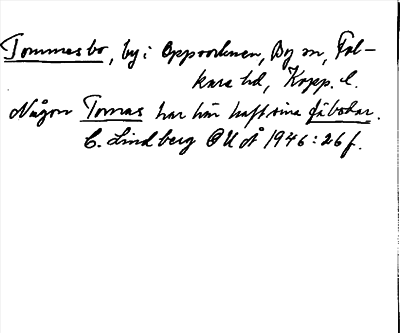 Tommesbo, by i Uppsveden, By sn, Fol-
kare hd, Kopp. l.
Någon Tomas har här haft sina fäbodar.
C. Lindberg OUÅ 1946:26 f.